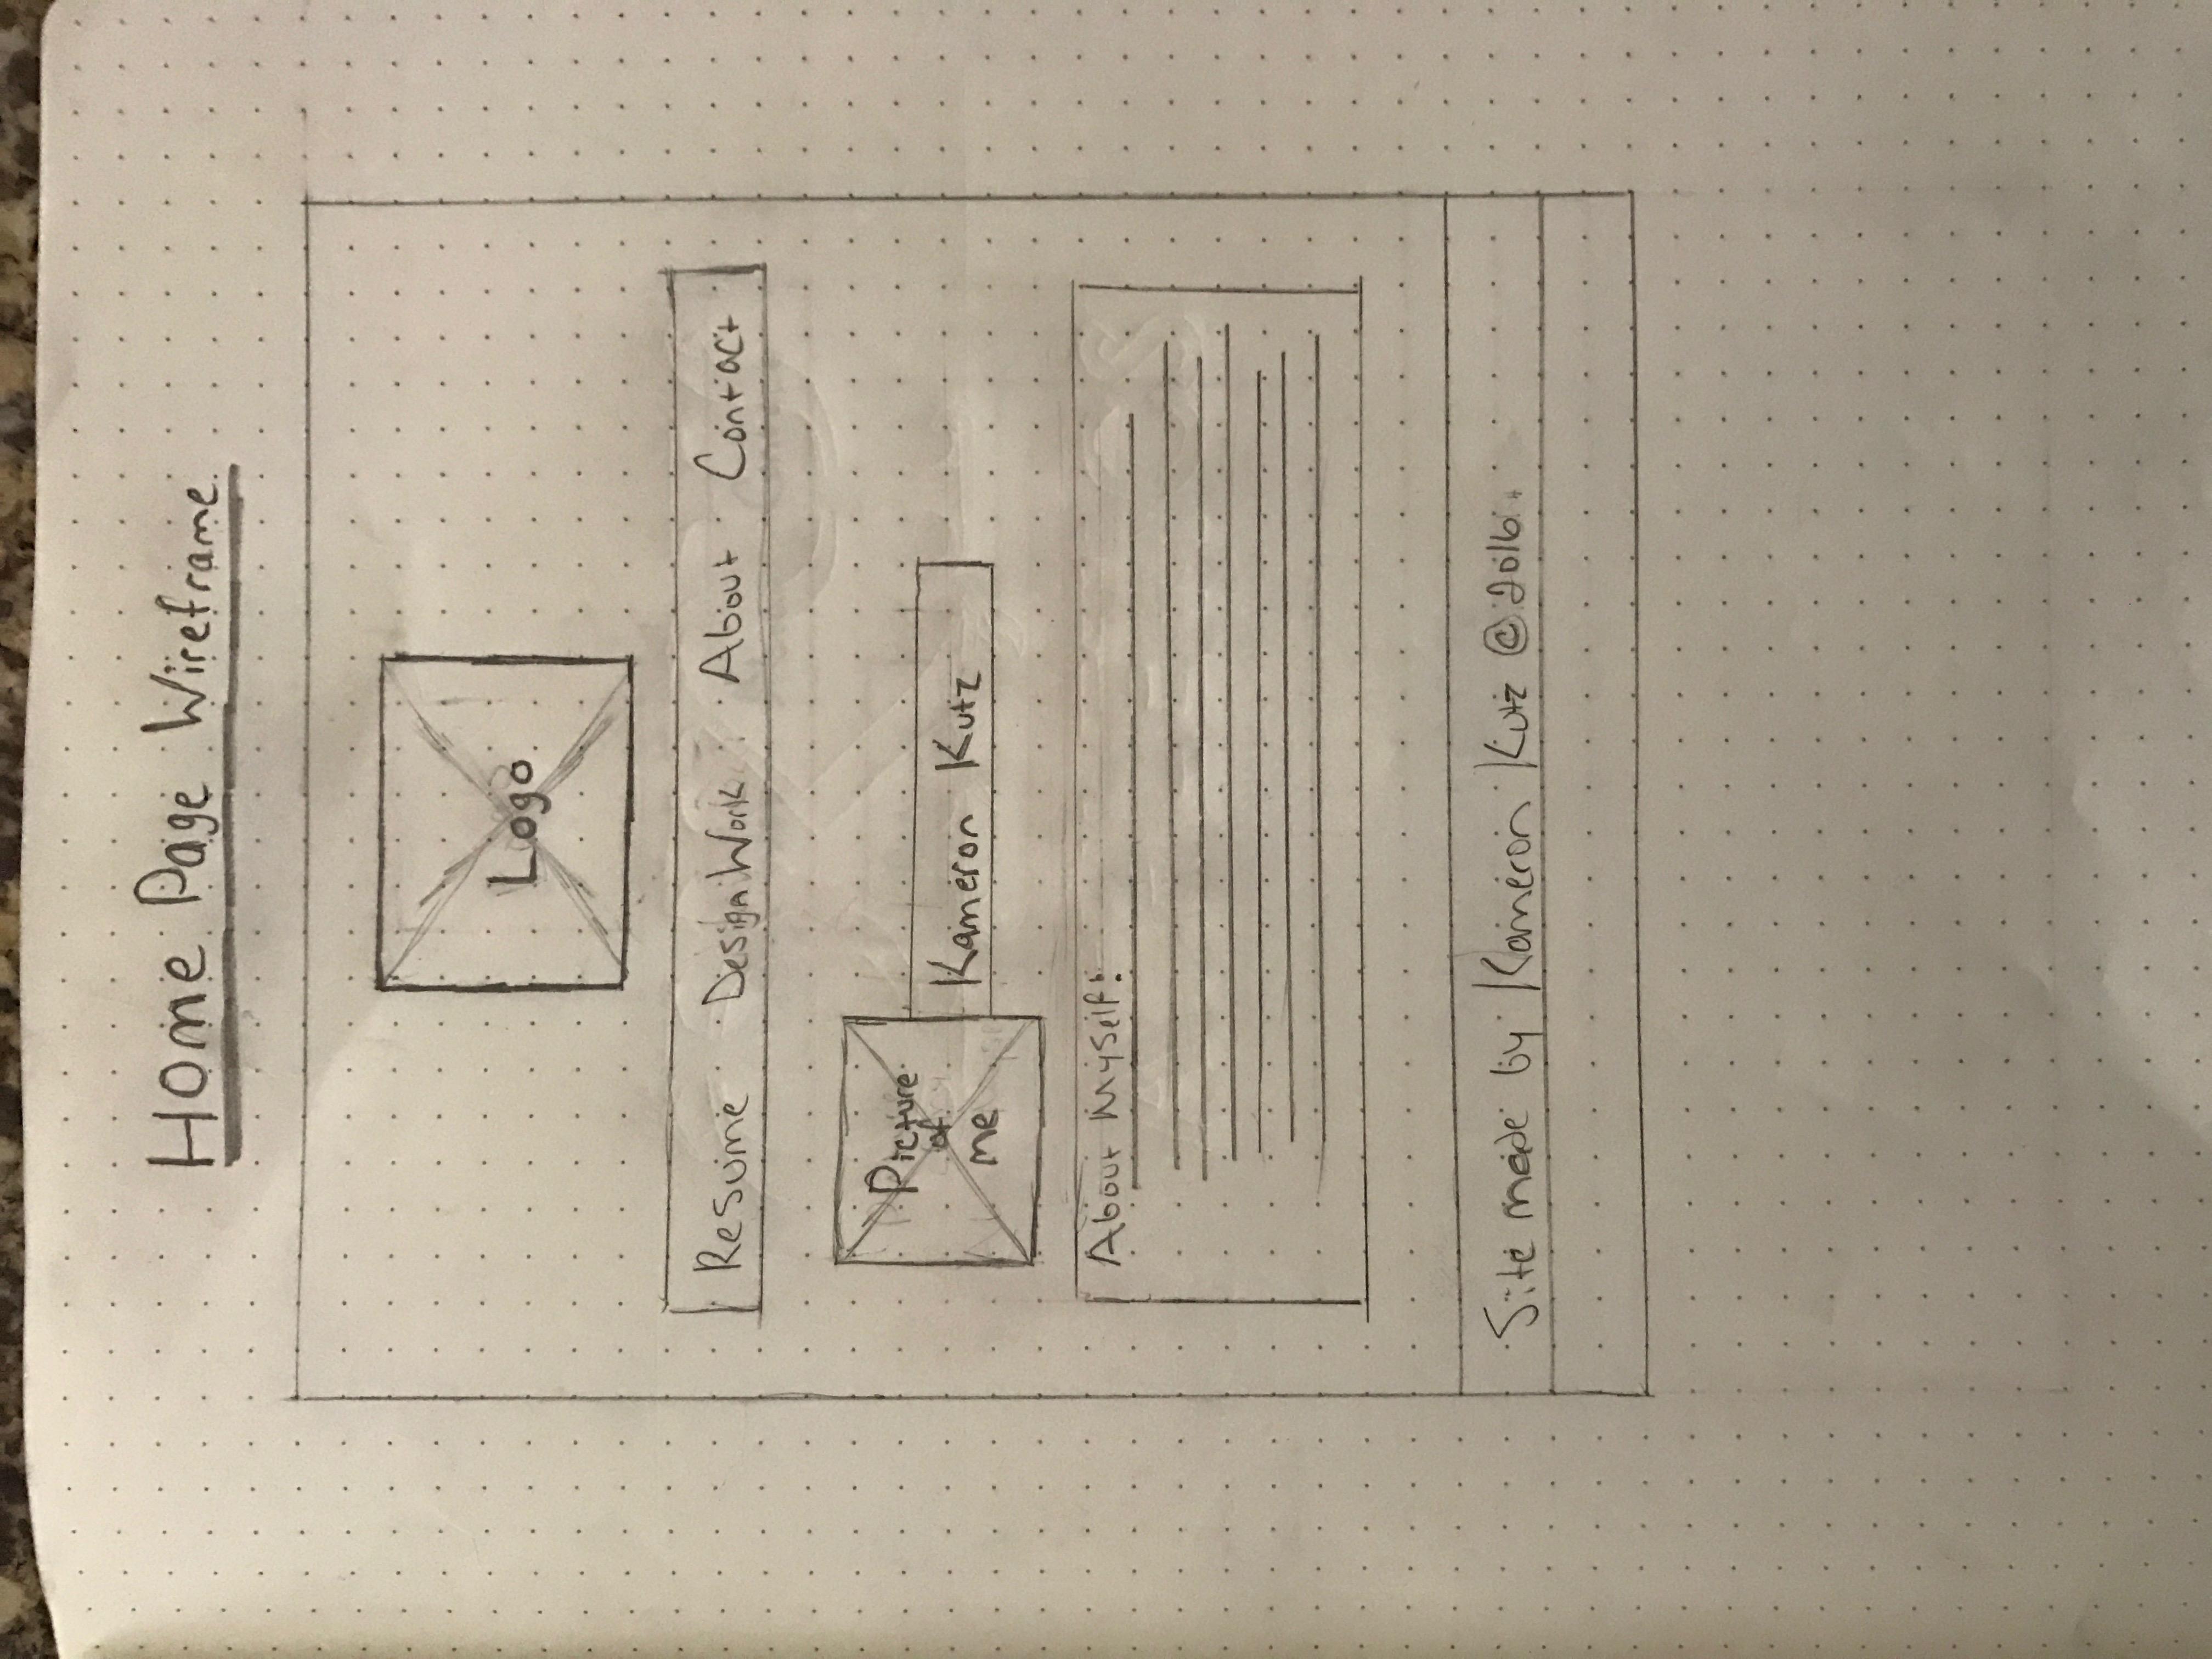 Home Page Wireframe
Logo
Resume Design Work About Contact
Picture
of
me
Kameron Kutz
About Myself:
Site made by Kameron Kutz © 2016